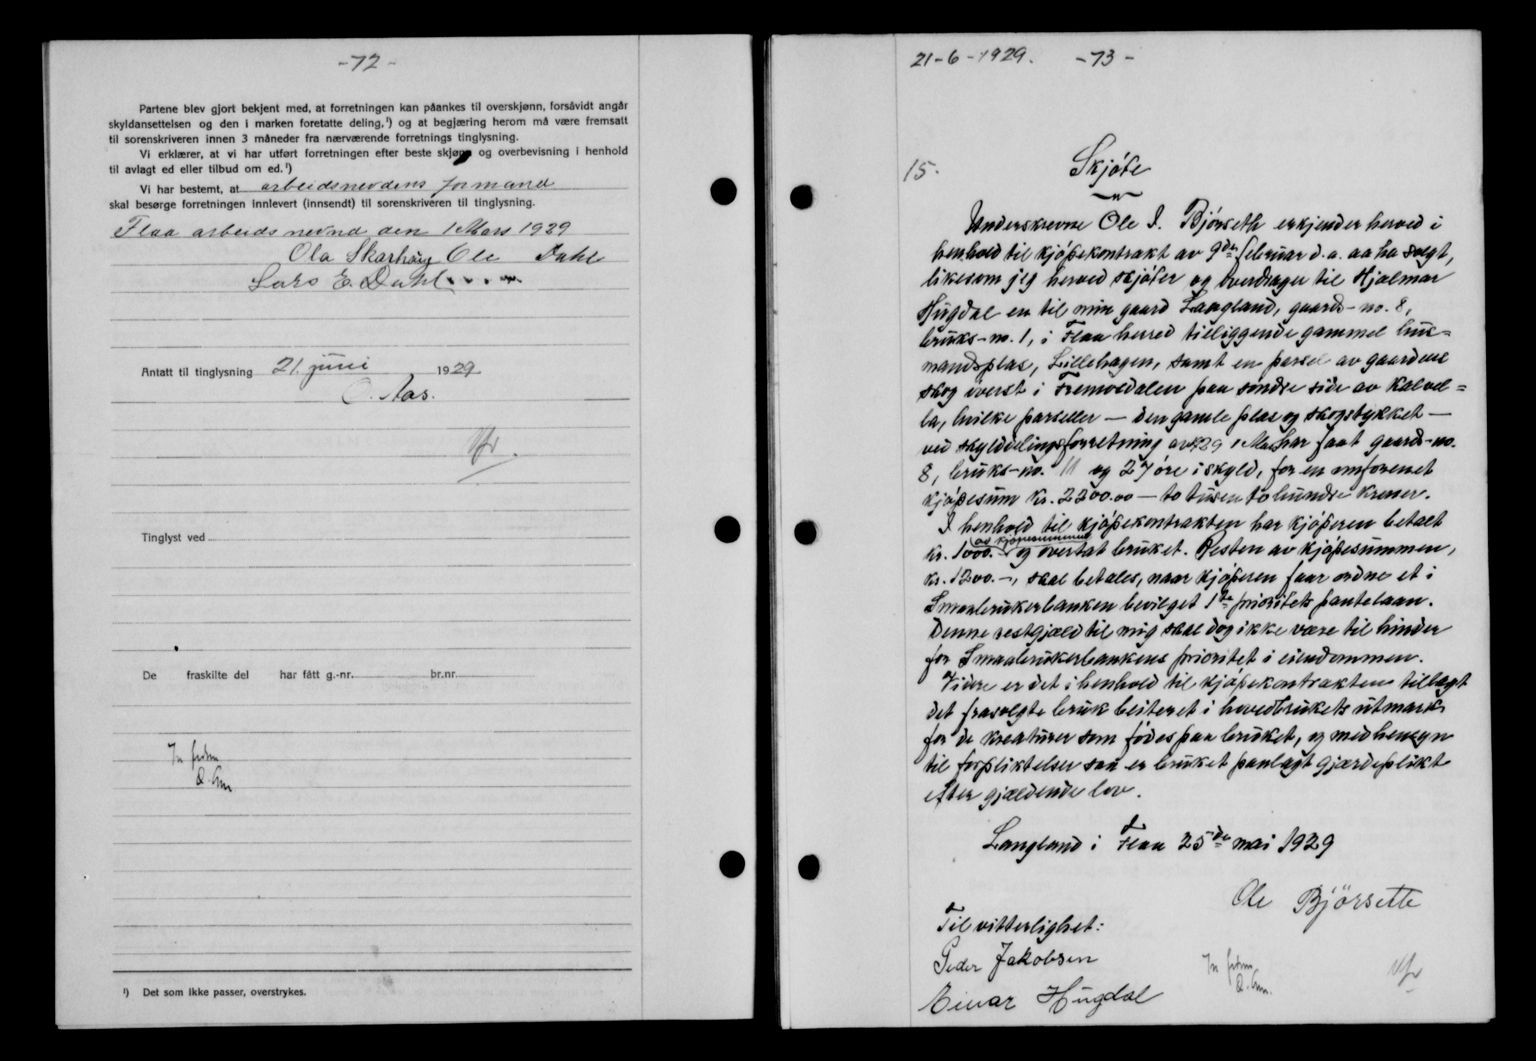 -72-
Partene blev gjort bekjent med, at forretningen kan påankes til overskjønn, forsåvidt angår
skyldansettelsen og den i marken foretatte deling,¹) og at begjæring herom må være fremsatt
til sorenskriveren innen 3 måneder fra nærværende forretnings tinglysning.
Vi erklærer, at vi har utført forretningen efter beste skjønn og overbevisning i henhold
til avlagt ed eller tilbud om ed.¹)
Vi har bestemt, at arbeidsnevdens formand
skal besørge forretningen innlevert (innsendt) til sorenskriveren til tinglysning.
Flaa arbeidsnevnd den 1 Mars 1929
Ola Skarhaug Ole Dahl
Lars E. Dahl
Antatt til tinglysning 21. juni 1929
O. Aas.
Tinglyst ved
De fraskilte del har fått g.-nr. br.nr.
¹) Det som ikke passer, overstrykes.
21-6-1929. -73-
15. Skjøte
Underskrevne Ole I. Bjørseth erkjender herved i
henhold til kjøpekontrakt av 9de februar d.a. aa ha solgt,
likesom jeg herved skjøter og overdrager til Hjalmar
Hugdal en til min gaard Langland, gaards-no. 8,
bruks-no. 1, i Flaa herred tilliggende gammel hus=
mandsplas, Lillehagen, samt en parsel av gaardens
skog øverst i Fremosdalen paa søndre side av Kalvel=
la, hvilke parseller — den gamle plas og skogstykket —
ved skylddelingsforretning av 1/3 29 har faat gaards-no.
8, bruks-no. 11 og 27 øre i skyld, for en omforenet
kjøpesum kr. 2200.00 — to tusen tohundre kroner.
I henhold til kjøpekontrakten har kjøperen betalt
kr. 1000.- av kjøpesummen og overtat bruket. Resten av kjøpesummen,
kr. 1200.-, skal betales, naar kjøperen faar ordne et i
Smaabrukerbanken bevilget 1ste prioritets pantelaan.
Denne restgjæld til mig skal dog ikke være til hinder
for Smaabrukerbankens prioritet i eiendommen.
Videre er det i henhold til kjøpekontrakten tillagt
det frasolgte bruk beiteret i hovedbrukets utmark
for de kreaturer som fødes paa bruket, og med hensyn
til forpliktelser saa er bruket paalagt gjærdeplikt
efter gjældende lov.
Langland i Flaa 25de mai 1929
Ole Bjørseth
Til vitterlighet:
Peder Jakobsen
Einar Hugdal